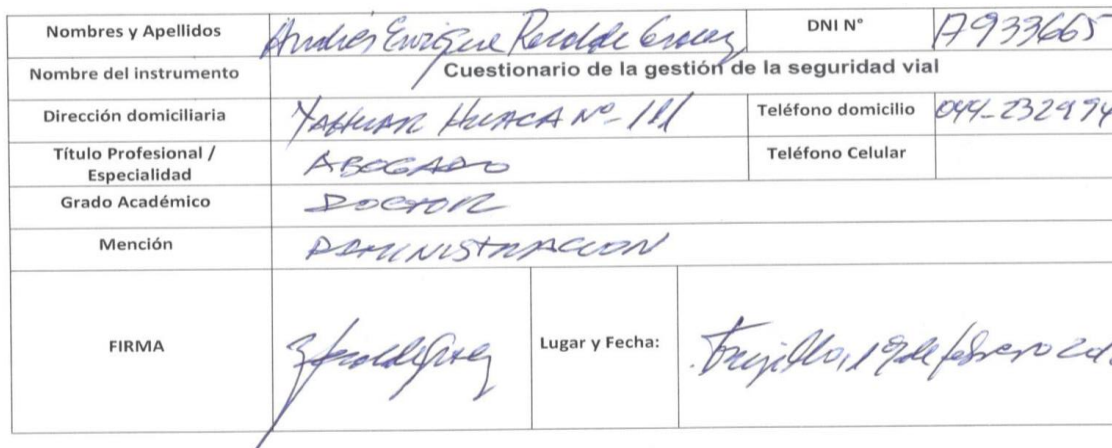 Nombres y Apellidos Andrés Enrique Recalde DNI N° 17933665
Nombre del instrumento Cuestionario de la gestión de la seguridad vial
Dirección domiciliaria YAHUAR HUACA Nº 111 Teléfono domicilio 044-232994
Título Profesional / Especialidad ABOGADO Teléfono Celular
Grado Académico DOCTOR
Mención ADMINISTRACION
FIRMA Lugar y Fecha: Trujillo, 19 de febrero